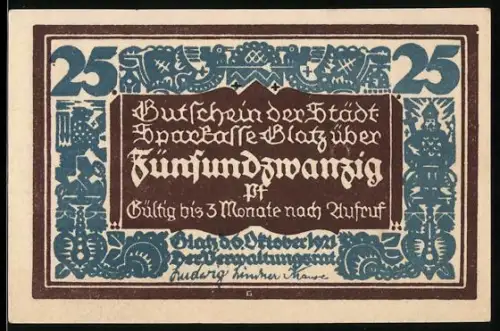 25 25
Gutschein der Städt
Sparkasse Glatz über
Fünfundzwanzig
Pf
Gültig bis 3 Monate nach Aufruf
Glatz d. 6. Oktober 1921
Der Verwaltungsrat
Ludwig
G